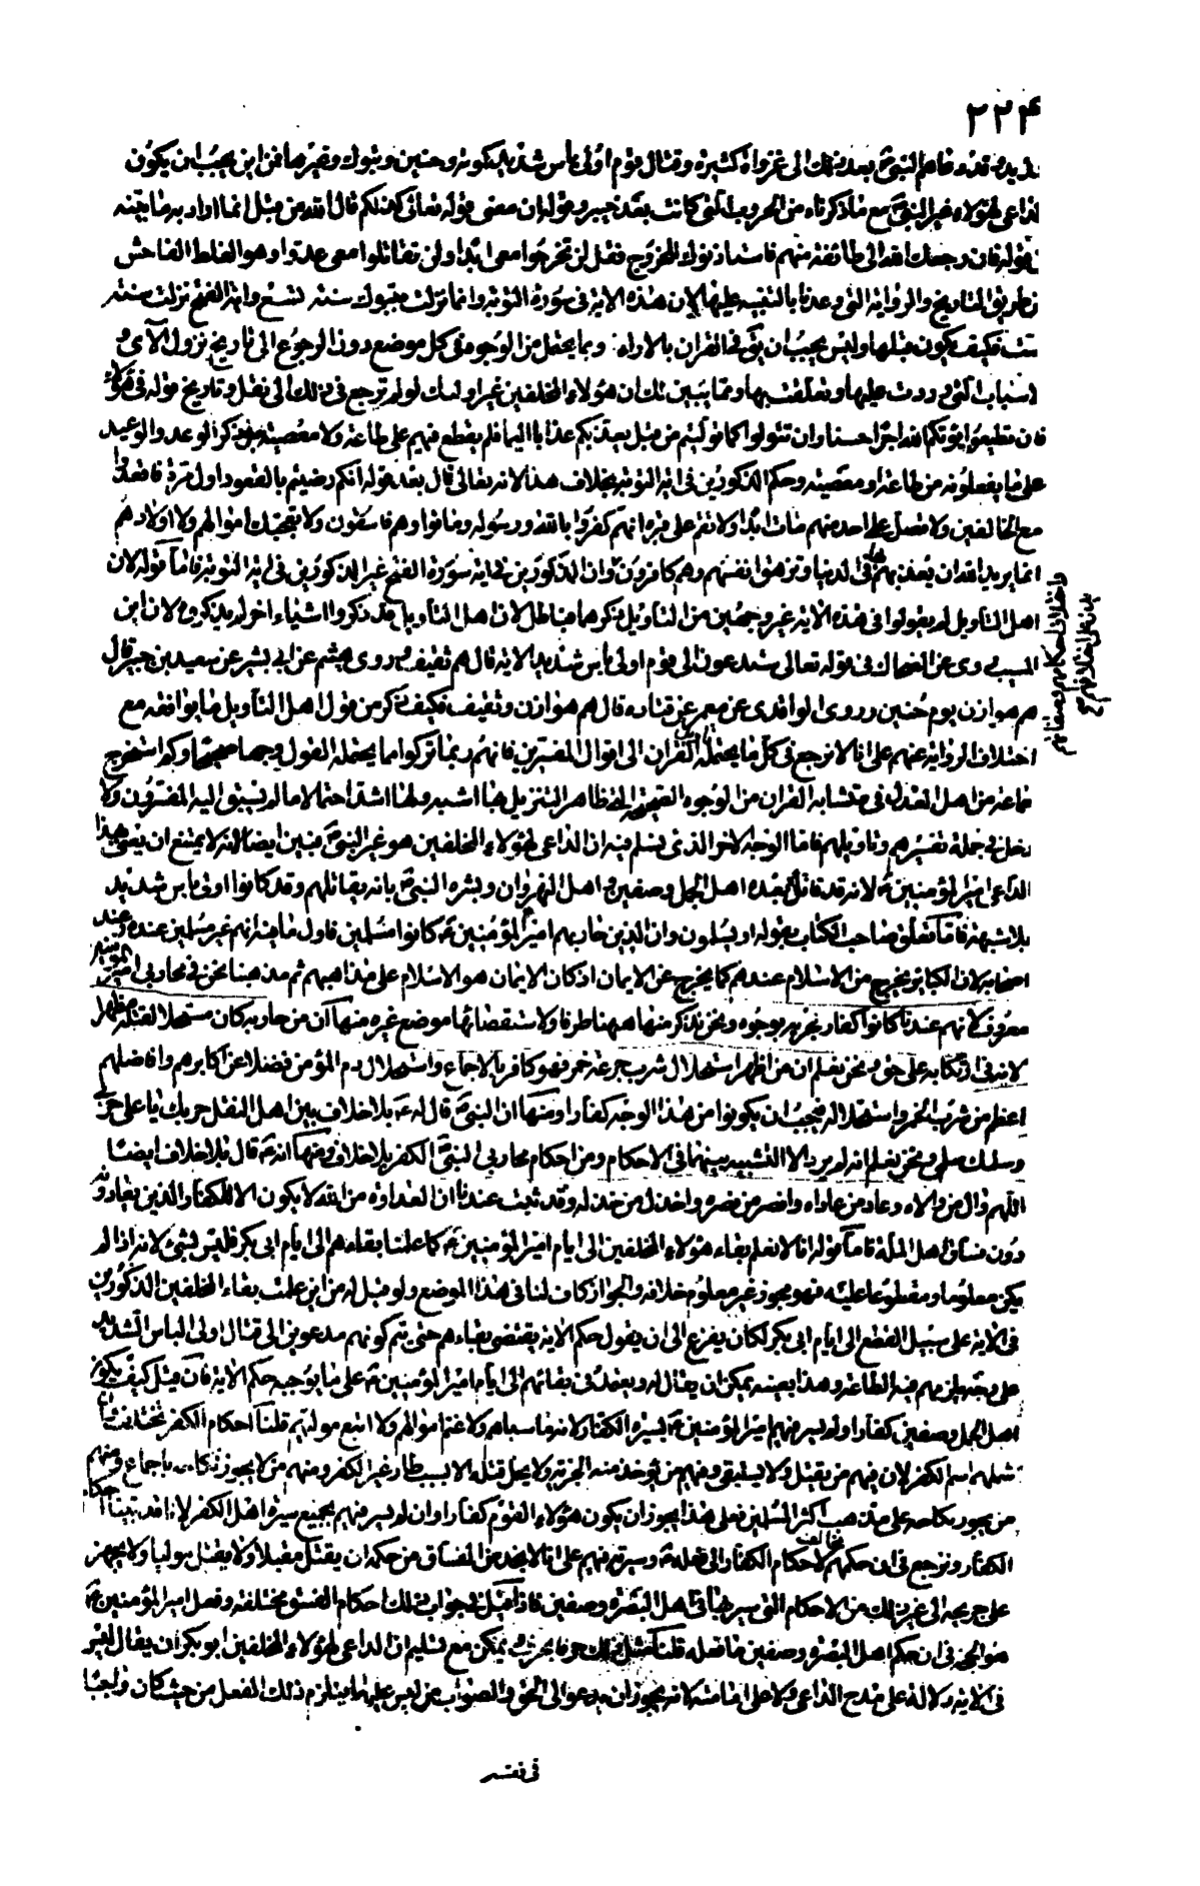 ٢٢۴
شديد وقد دعاهم النبي ص بعد ذلك الى غزوات كثيرة وقتال قوم اولى باس شديد كموته وحنين وتبوك وغيرها فمن اين يجب ان يكون
الداعى لهؤلاء غير النبي ص مع ما ذكرناه من الحروب التى كانت بعد خيبر وقوله ان معنى قوله تعالى كذلكم قال الله من قبل انما اراد به ما بينه
بقوله فان رجعك الله الى طائفة منهم فاستاذنوك للخروج فقل لن تخرجوا معى ابدا ولن تقاتلوا معى عدوا وهو الغلط الفاحش
من طريق التاريخ والرواية التى وعدنا بالتنبيه عليها لان هذه الاية فى سورة التوبة وانما نزلت بتبوك سنة تسع واية الفتح نزلت سنة
ست فكيف يكون قبلها وليس يجب ان يق فى القران بالاراء وبما يحتمل من الوجوه فى كل موضع دون الرجوع الى تاريخ نزول الآى و
الاسباب التى وردت عليها وتعلقت بها ومما يبين لك ان هؤلاء المخلفين غير اولئك لو لم ترجع فى ذلك الى نقل وتاريخ قوله فى هؤلاء
فان تطيعوا يؤتكم الله اجرا حسنا وان تتولوا كما توليتم من قبل يعذبكم عذابا اليما فلم يقطع فيهم على طاعة ولا معصية بل ذكر الوعد والوعيد
على ما يفعلونه من طاعة او معصية وحكم المذكورين فى اية التوبة بخلاف هذا لانه تعالى قال بعد قوله انكم رضيتم بالقعود اول مرة فاقعدوا
مع الخالفين ولا تصل على احد منهم مات ابدا ولا تقم على قبره انهم كفروا بالله ورسوله وماتوا وهم فاسقون ولا تعجبك اموالهم ولا اولادهم
انما يريد الله ان يعذبهم بها فى الدنيا وتزهق انفسهم وهم كافرون
واختلاف احكامهم وصفاتهم
يدل على اختلافهم
وان المذكورين فى اية سورة الفتح غير المذكورين فى اية التوبة فاما قوله لان
اهل التاويل لم يقولوا فى هذه الاية غير وجهين من التاويل ذكرهما فباطل لان اهل التاويل قد ذكروا اشياء اخر لم يذكرها لان ابن
المسيب روى عن الضحاك فى قوله تعالى ستدعون الى قوم اولى باس شديد الاية قال هم ثقيف وروى هيثم عن ابى بشر عن سعيد بن جبير قال
هم هوازن يوم حنين وروى الواقدى عن معمر عن قتاده قال هم هوازن وثقيف فكيف ذكر من قول اهل التاويل ما يوافقه مع
اختلاف الرواية عنهم على انا لا نرجع فى كل ما يحتمله القران الى اقوال المفسرين فانهم ربما تركوا مما يحتمله القول وجها صحيحا وكم استخرج
جماعة من اهل العدل فى متشابه القران من الوجوه الصحيحة التى ظاهر التنزيل بها اشبه ولها اشد احتمالا ما لم يسبق اليه المفسرون ولا
دخل فى جملة تفسيرهم وتاويلهم فاما الوجه الاخر الذى نسلم فيه ان الداعى لهؤلاء المخلفين هو غير النبي ص فبين ايضا لانه لا يمتنع ان يعنى بهذا
الداعى امير المؤمنين ع لانه قد قاتل بعده اهل الجمل وصفين واهل النهروان وبشره النبي ص بانه يقاتلهم وقد كانوا اولى باس شديد
بلا شبهة فاما تعلق صاحب الكتاب بقوله او يسلمون وان الذين حاربهم امير المؤمنين ع كانوا مسلمين فاول ما فيه انهم غير مسلمين عنده وعند
اصحابه لان الكبائر تخرج من الاسلام عندهم كما تخرج عن الايمان اذ كان الايمان هو الاسلام على مذاهبهم ثم مذهبنا نحن فى محاربى امير المؤمنين
معروف لانهم عندنا كانوا كفار بحربه بوجوه ونحن نذكر منها ههنا طرفا ولاستقصائها موضع غيره منها ان من حاربه كان مستحلا لقتله مظهرا
لانه فى ارتكابه على حق ونحن نعلم ان من اظهر استحلال شرب جرعة خمر فهو كافر بالاجماع واستحلال دم المؤمن فضلا عن اكابرهم وافاضلهم
اعظم من شرب الخمر واستحلاله فيجب ان يكونوا من هذا الوجه كفارا ومنها ان النبي ص قال له ع بلا خلاف بين اهل النقل حربك يا على حربى
وسلمك سلمى ونحن نعلم انه لم يرد الا التشبيه بينهما فى الاحكام ومن احكام محاربى النبي ص الكفر بلا خلاف ومنها انه ع قال بلا خلاف ايضا
اللهم وال من والاه وعاد من عاداه وانصر من نصره واخذل من خذله وقد ثبت عندنا ان العداوة من الله لا يكون الا للكفار الذين يعادونه
دون فساق اهل الملة فاما قوله انا لا نعلم بقاء هؤلاء المخلفين الى ايام امير المؤمنين ع كما علمنا بقاءهم الى ايام ابى بكر فليس بشئ لانه اذا لم
يكن معلوما ومقطوعا عليه فهو مجوز غير معلوم خلافه والجواز كاف لنا فى هذا الموضع ولو قيل له من اين علمت بقاء المخلفين المذكورين
فى الاية على سبيل القطع الى ايام ابى بكر لكان يفزع الى ان يقول حكم الاية يقتضى بقاءهم حتى يتم كونهم مدعوين الى قتال اولى الباس الشديد
على وجه يلزمهم فيه الطاعة وهذا بعينه يمكن ان يقال له ويعتمد فى بقائهم الى ايام امير المؤمنين ع على ما يوجبه حكم الاية فان قيل كيف يكون
اهل الجمل وصفين كفارا ولم يسر فيهم امير المؤمنين ع بسيرة الكفار لانه ما سباهم ولا غنم اموالهم ولا اتبع موليهم قلنا احكام الكفر تختلف وان
شملهم اسم الكفر لان فيهم من يقتل ولا يستبقى وفيهم من يؤخذ منه الجزية ولا يحل قتله الا بسبب طار غير الكفر ومنهم من لا يجوز نكاحه باجماع ومنهم
من يجوز نكاحه على مذهب اكثر المسلمين فعلى هذا يجوز ان يكون هؤلاء القوم كفارا وان لم يسر فيهم بجميع سيرة اهل الكفر لانا قد بينا احكام
الكفار ونرجع فى ان حكمهم مخالف لاحكام الكفار الى فعله ع وسيرته فيهم على انا لا نجد من الفساق من حكمه ان يقتل مقبلا ولا يقتل موليا ولا يجهز
على جريحه الى غير ذلك من الاحكام التى سيرها فى اهل البصرة وصفين فاذا قيل فى جواب ذلك احكام الفسق مختلفة وفعل امير المؤمنين ع
هو الحجة فى ان حكم اهل البصرة وصفين ما فعله قلنا مثل ذلك حرفا بحرف يمكن مع تسليم ان الداعى لهؤلاء المخلفين ابو بكر ان يقال ليس
فى الاية دلالة على مدح الداعى ولا على امامته لانه يجوز ان يدعو الى الحق والصواب من ليس عليهما فيلزم ذلك الفعل من حيث كان واجبا
فى نفسه